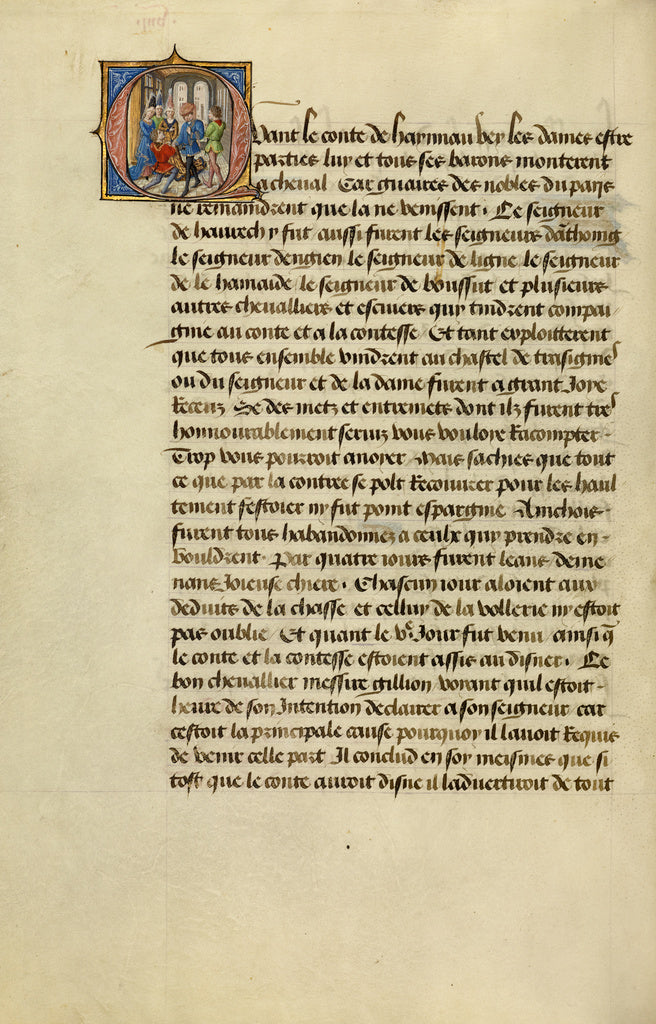 Quant le conte de haynnau vey les dames estre
parties luy et tous ses barons monterent
a cheval Car guaires des nobles du pays
ne remaindrent que la ne venissent. Le seigneur
de haurech y fut aussi furent les seigneurs danthoing
le seigneur denghien le seigneur de ligne le seigneur
de le hamaide le seigneur de boussut et plusieurs
autres chevalliers et escuiers quy tindrent compai
gnie au conte et a la contesse Et tant exploitterent
que tous ensemble vindrent au chastel de trasignies
ou du seigneur et de la dame furent a grant Joye
Receuz Se des metz et entremets dont ilz furent tres
honnourablement serviz vous vouloye Racompter
Trop vous pourroit anoyer Mais sachies que tout
ce que par la contree se polt Recouvrer pour les haul
tement festoier ny fut point espargnie Ainchois
furent tous habandonnez a ceulx quy prendre en
vouldrent. Par quatre iours furent leans deme
nans Joieuse chiere. Chascun iour aloient aux
deduits de la chasse et celluy de la vollerie ny estoit
pas oublie Et quant le ve Jour fut venu ainsi q̄
le conte et la contesse estoient assis au disner. Le
bon chevallier messire gillion voyant quil estoit
heure de son Intention declairer a son seigneur car
cestoit la principale cause pourquoy il lavoit Requis
de venir celle part Il conclud en soy meismes que si
tost que le conte auroit disne il ladvertiroit de tout